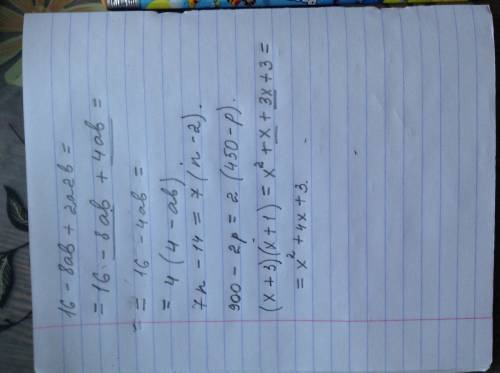 16 - 8ab + 2a2b =
= 16 - 8ab + 4ab =
= 16 - 4ab =
= 4 (4 - ab)
7n - 14 = 7 (n - 2).
900 - 2p = 2 (450 - p).
(x + 3)(x + 1) = x² + x + 3x + 3 =
= x² + 4x + 3.